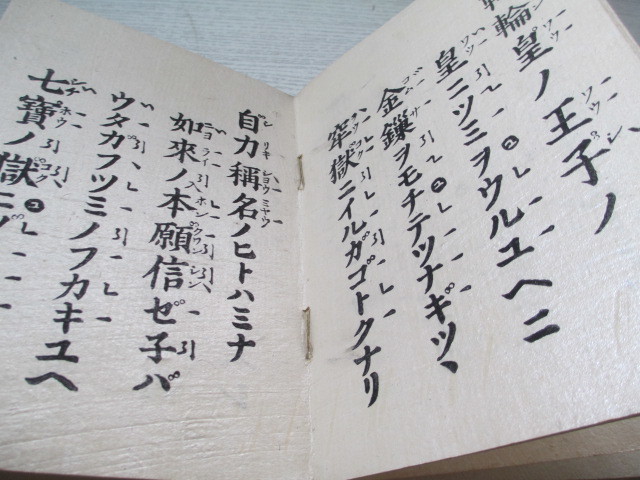 轉輪皇ノ王子ノ
皇ニツミヲウルユヘニ
金鏁ヲモチテツナギツヽ
牢獄ニイルガゴトクナリ
自力稱名ノヒトハミナ
如來ノ本願信ゼ子バ
ウタガフツミノフカキユヘ
七寳ノ獄ニゾ